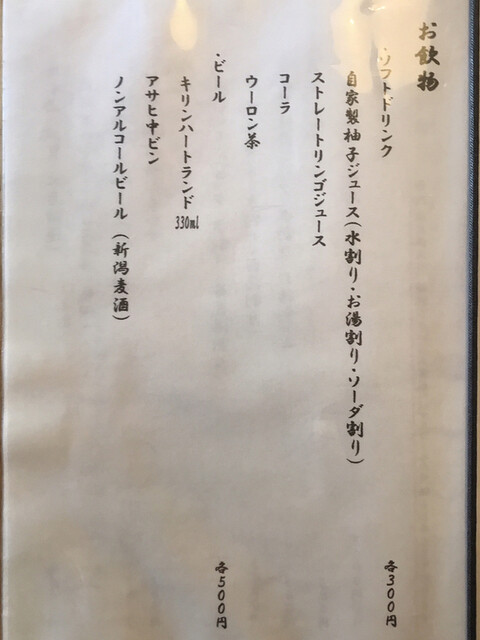 お飲物
・ソフトドリンク 各300円
自家製柚子ジュース(水割り・お湯割り・ソーダ割り)
ストレートリンゴジュース
コーラ
ウーロン茶
・ビール 各500円
キリンハートランド 330ml
アサヒ中ビン
ノンアルコールビール (新潟麦酒)